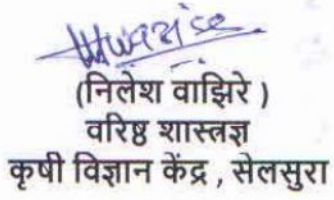 (निलेश वाझिरे )
वरिष्ठ शास्त्रज्ञ
कृषी विज्ञान केंद्र , सेलसुरा